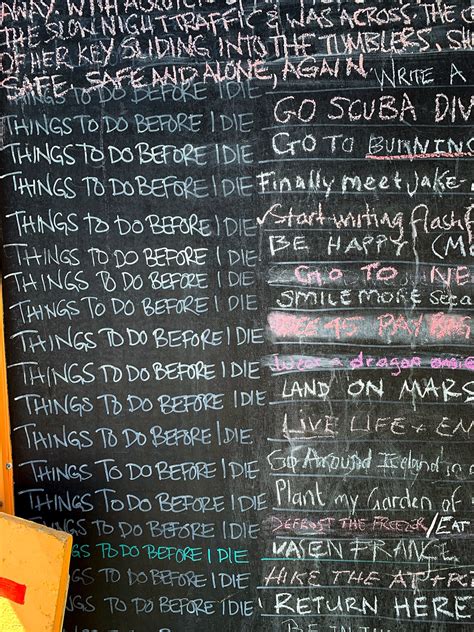 THE SLOW NIGHT TRAFFIC & WAS ACROSS THE
OF HER KEY SLIDING INTO THE TUMBLERS. SH
SAFE. SAFE AND ALONE, AGAIN. WRITE A
THINGS TO DO BEFORE I DIE
THINGS TO DO BEFORE I DIE GO SCUBA DIV
THINGS TO DO BEFORE I DIE GO TO BURNING
THINGS TO DO BEFORE I DIE Finally meet Jake-
THINGS TO DO BEFORE I DIE Start writing flash
THINGS TO DO BEFORE I DIE BE HAPPY (M
THINGS TO DO BEFORE I DIE GO TO NE
THINGS TO DO BEFORE I DIE SMILE MORE
THINGS TO DO BEFORE I DIE PAY
THINGS TO DO BEFORE I DIE a dragon
THINGS TO DO BEFORE I DIE LAND ON MARS
THINGS TO DO BEFORE I DIE LIVE LIFE + EN
THINGS TO DO BEFORE I DIE Go Around Iceland in
THINGS TO DO BEFORE I DIE Plant my Garden of
THINGS TO DO BEFORE I DIE DEFROST THE FREEZER/EAT
THINGS TO DO BEFORE I DIE EN FRANCE
THINGS TO DO BEFORE I DIE HIKE THE AT + PC
THINGS TO DO BEFORE I DIE RETURN HERE